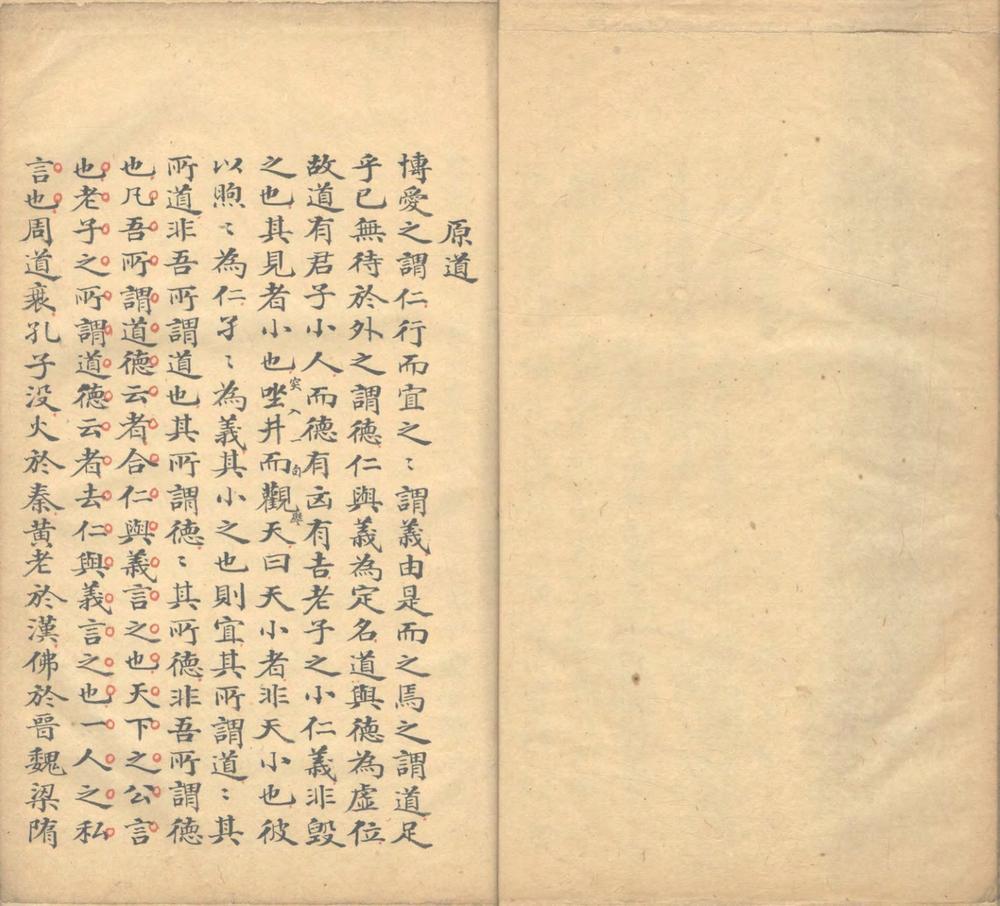 原道
博愛之謂仁行而宜之〻謂義由是而之焉之謂道足
乎已無待於外之謂德仁與義為定名道與德為虛位
故道有君子小人而德有凶有吉老子之小仁義非毀
突入一句
之也其見者小也坐井而觀天曰天小者非天小也彼
以煦〻為仁孑〻為義其小之也則宜其所謂道〻其
所道非吾所謂道也其所謂德〻其所德非吾所謂德
也凡吾所謂道德云者合仁與義言之也天下之公言
也老子之所謂道德云者去仁與義言之也一人之私
言也周道衰孔子没火於秦黄老於漢佛於晉魏梁隋